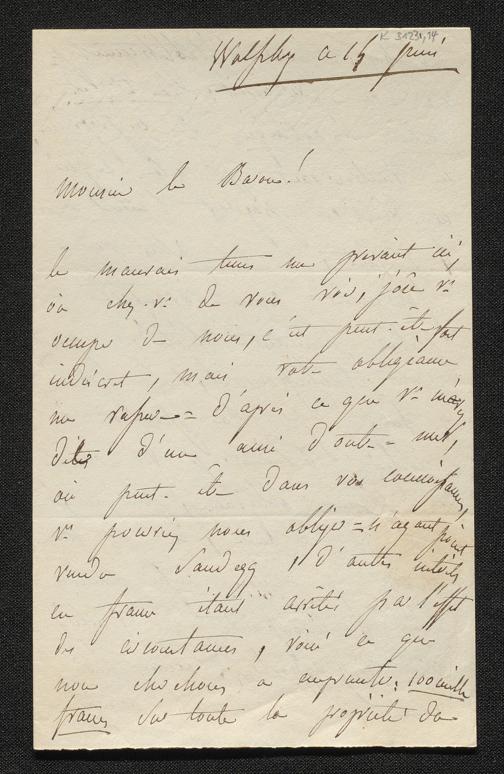 K 31231,14
Wolfsberg a 15 juin
Monsieur le Baron!
le mauvais tems me privant ici,
où chez-vs de vous voir, j'ôse vs
occuper de nous, c'est peut-être fort
indiscret, mais votre obligeance
me rassure = d'après ce que vs m'avez
dites d'un ami d'outre-mer,
où peut-être dans vos connoissances,
vs pourriez nous obliger = n'ayant point
vendu Sandegg, d'autres intérêts
en france étant arrêtés par l'effet
des circonstances, voici ce que
nous cherchons a emprunter: 100 mille
francs sur toute la propriété de